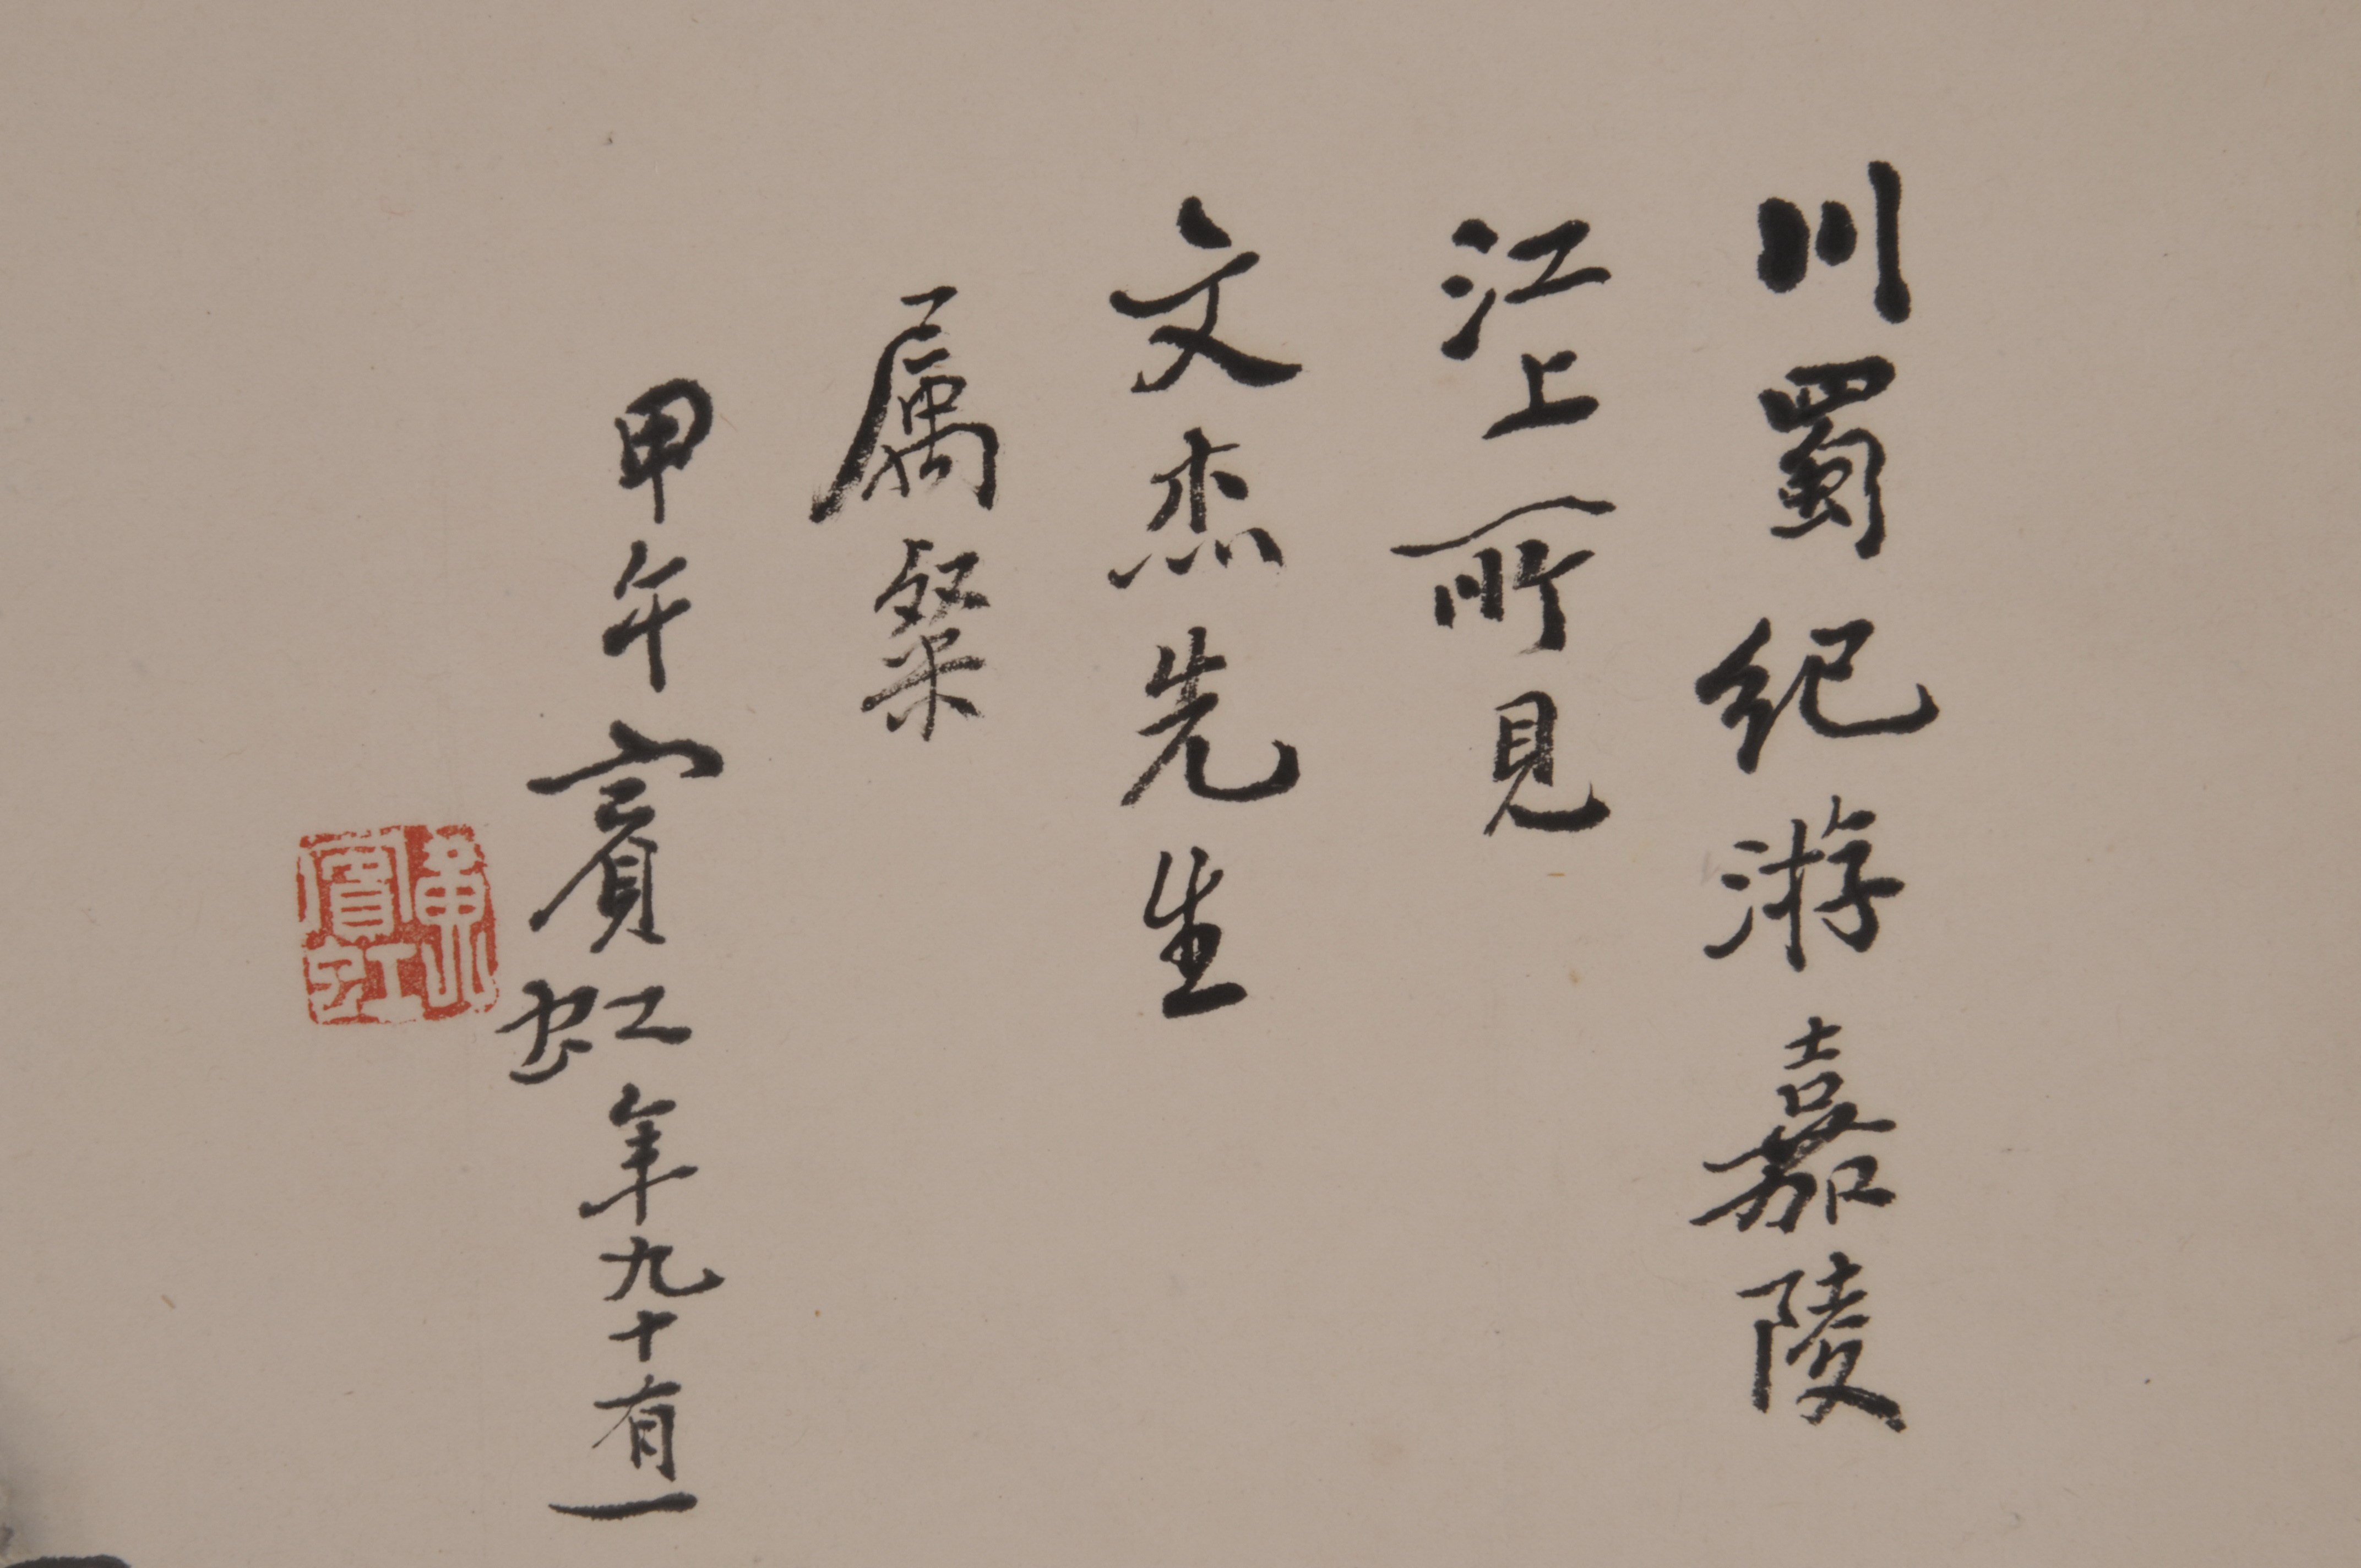 川蜀纪游嘉陵
江上所見
文杰先生
属粲
甲午賓虹年九十有一
黄山
賓虹